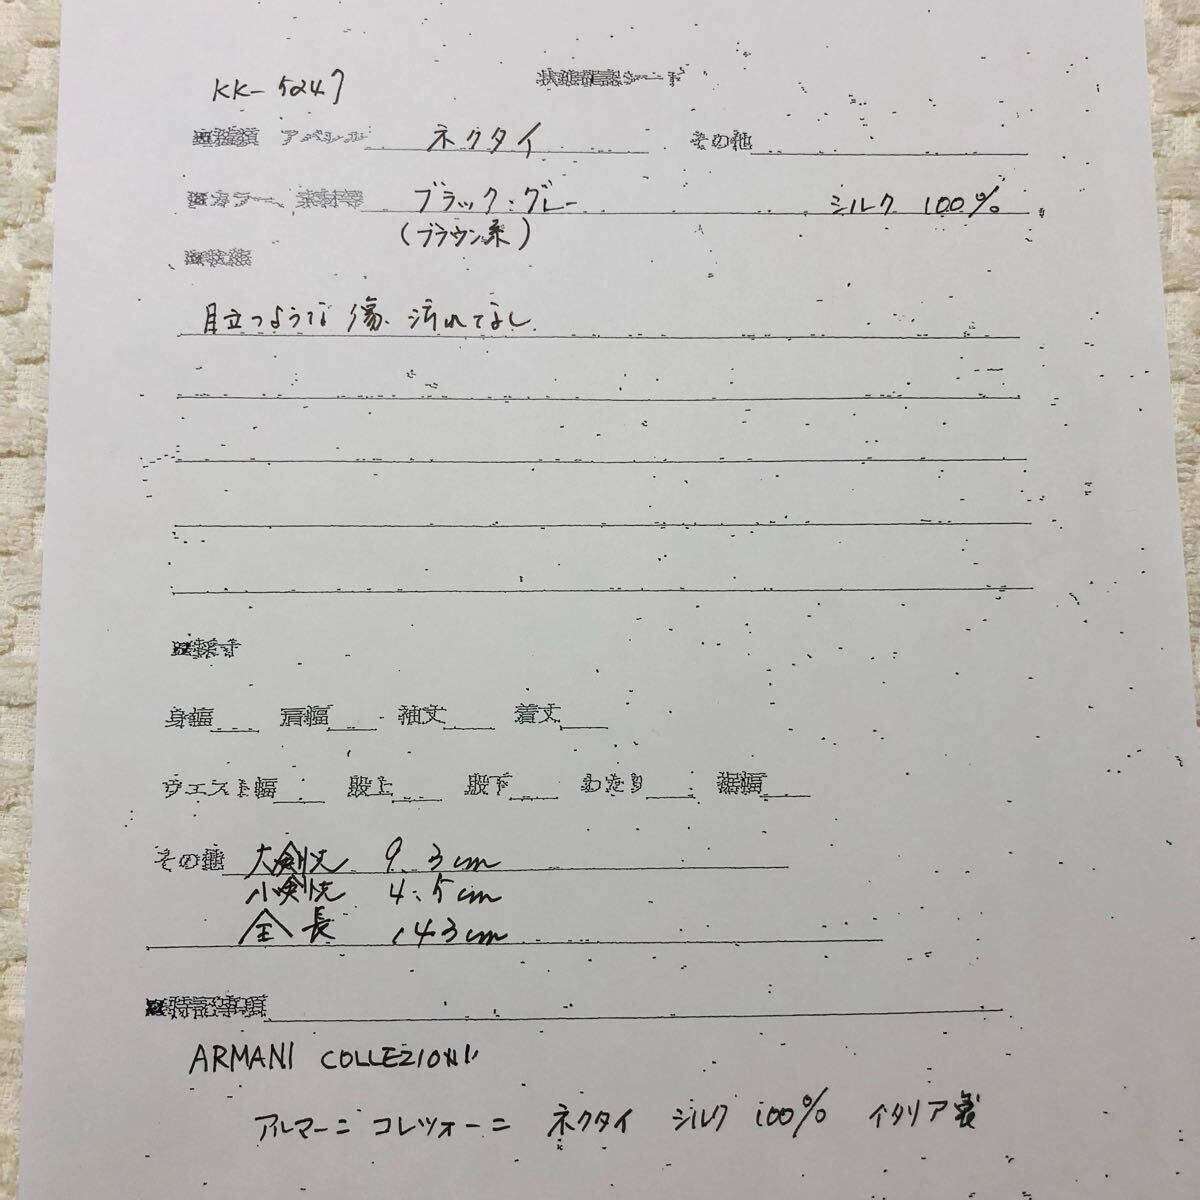 KK-5247
状態確認シート
■種類 アパレル ネクタイ その他
■カラー、素材等 ブラック:グレー シルク 100%
(ブラウン系)
■状態
目立つような傷、汚れてなし
■採寸
身幅 肩幅 袖丈 着丈
ウエスト幅 股上 股下 わたり 裾幅
その他 大剣丈 9.3cm
小剣丈 4.5cm
全長 143cm
■特記事項
ARMANI COLLEZIONI
アルマーニ コレツォーニ ネクタイ シルク 100% イタリア製